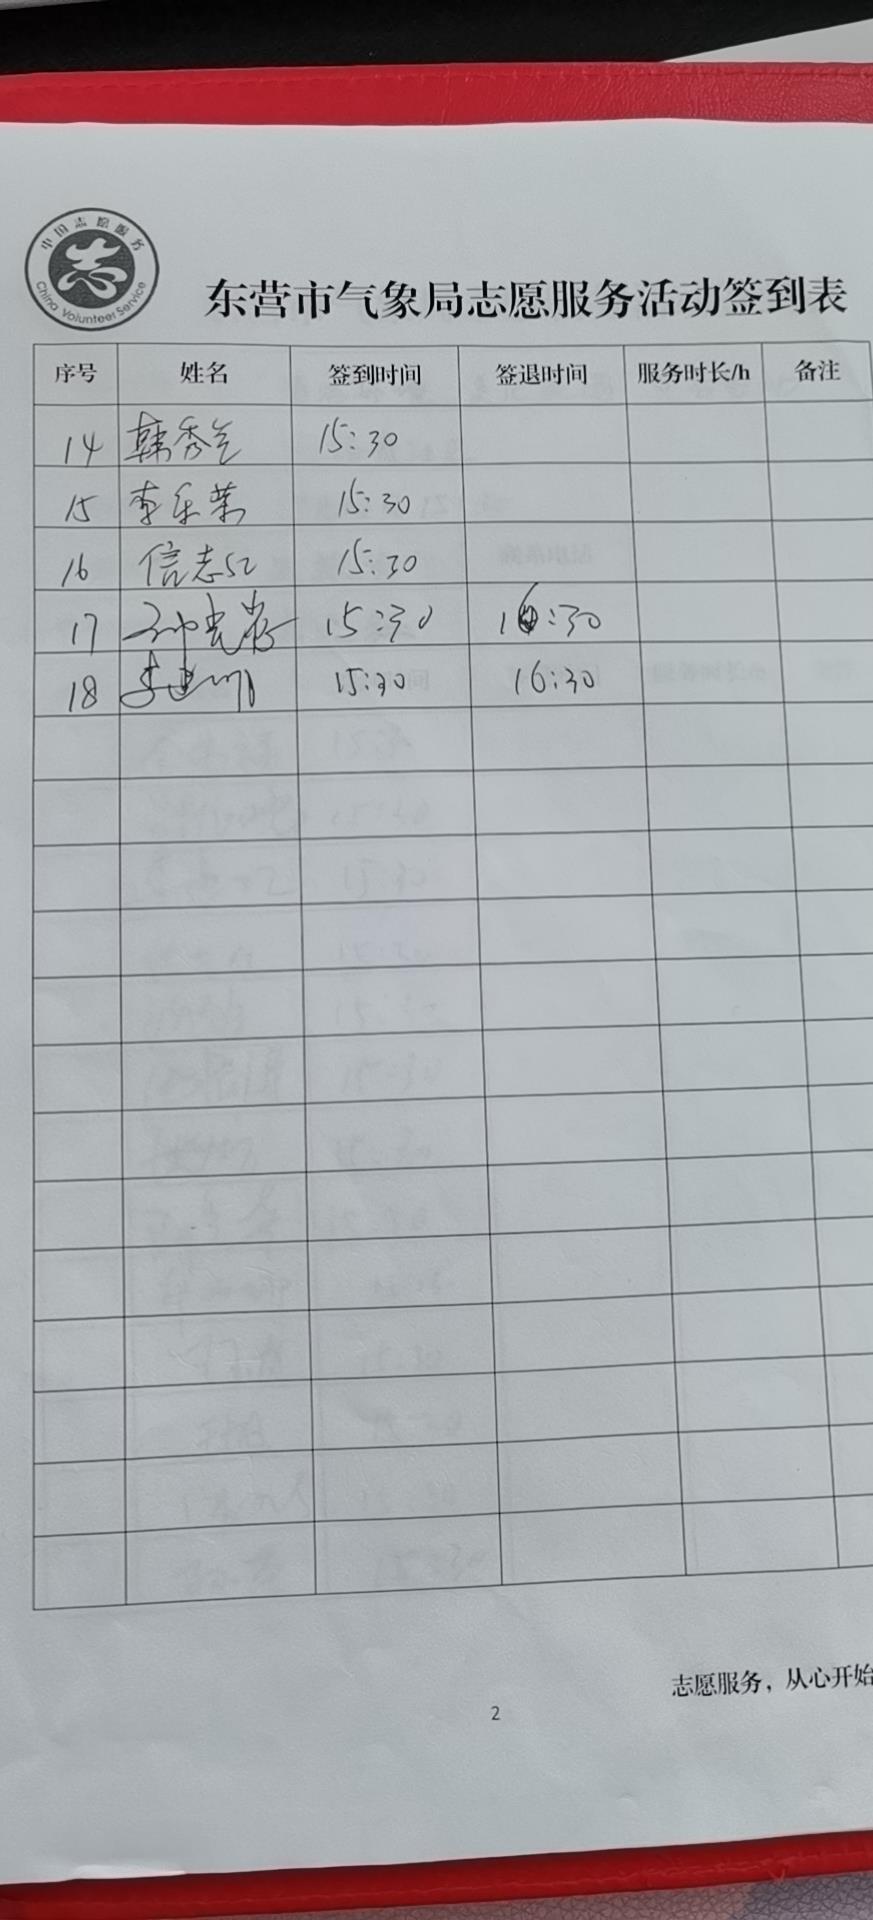 中国志愿服务
China Volunteer Service
东营市气象局志愿服务活动签到表
序号 姓名 签到时间 签退时间 服务时长/h 备注
14 韩秀 15:30
15 李乐 15:30
16 信志 15:30
17 15:30 16:30
18 李建 15:30 16:30
志愿服务，从心开始
2